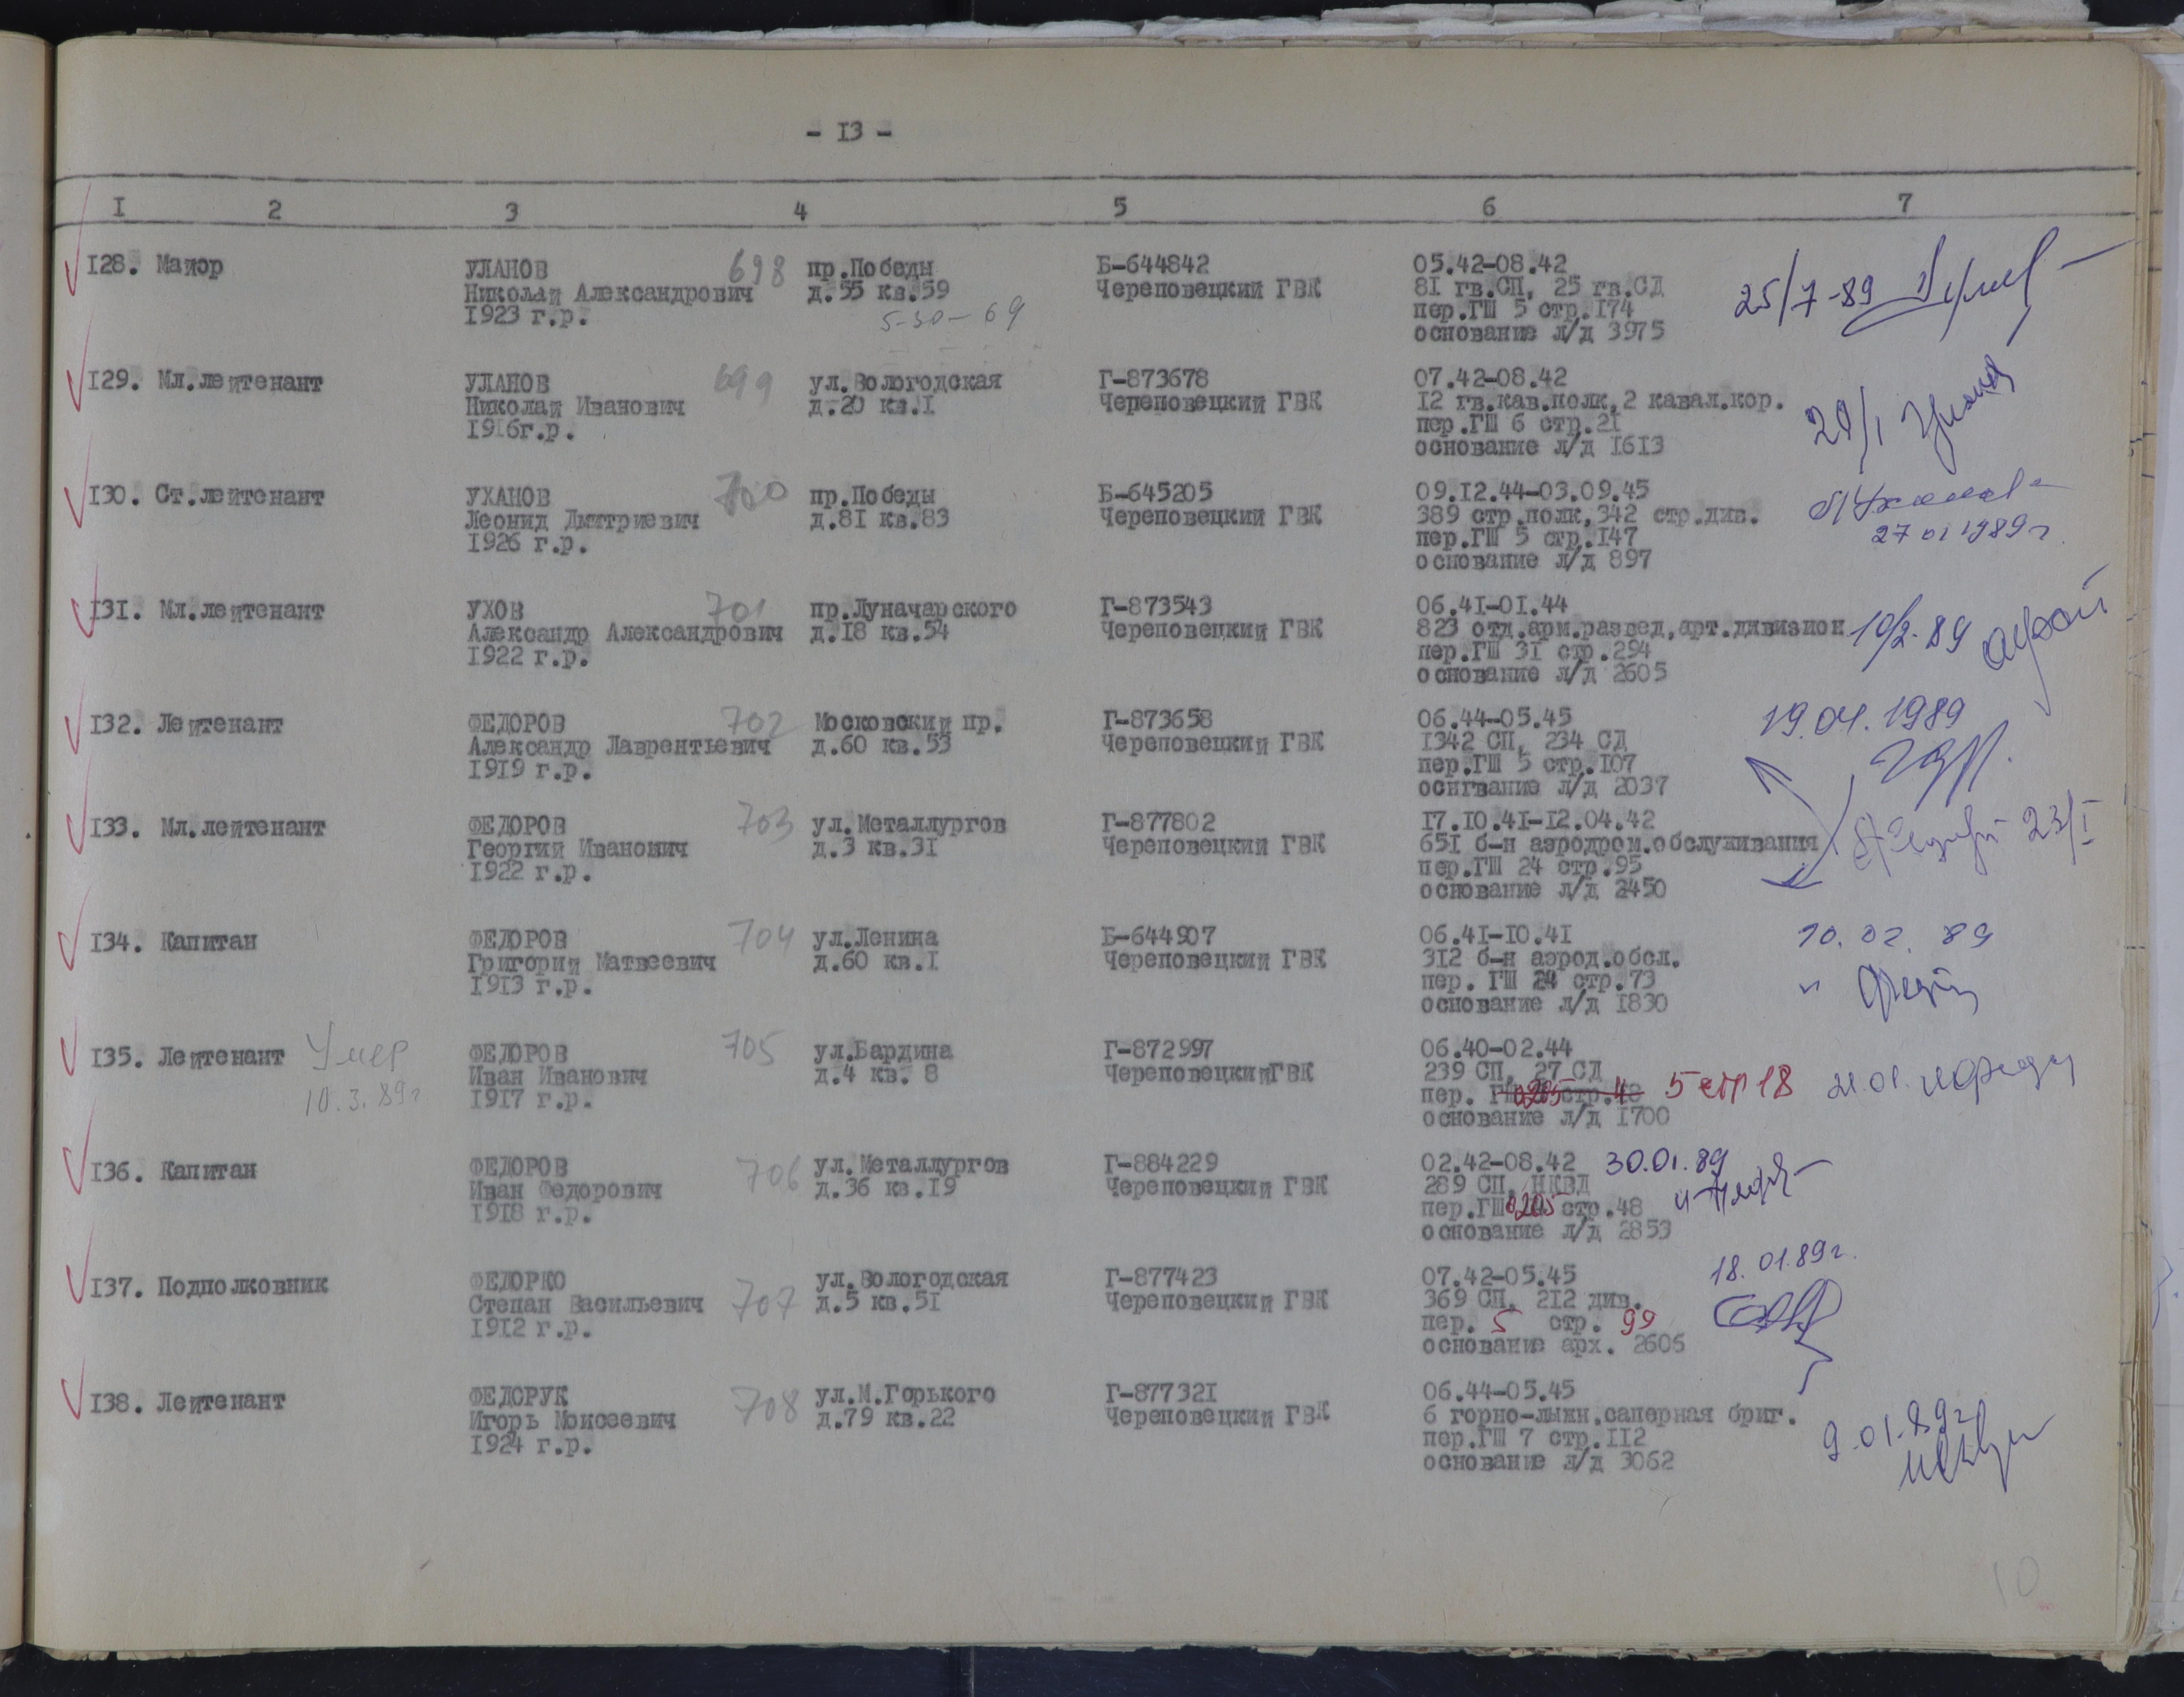 - I3 -
I 2 3 4 5 6 7
I28. Майор УЛАНОВ 698 пр.Победы Б-644842 05.42-08.42
Николай Александрович д.55 кв.59 Череповецкий ГВК 8I гв.СП, 25 гв.СД 25/7-89
I923 г.р. 5-30-69 пер.ГШ 5 стр.I74
основание л/д 3975
I29. Мл.лейтенант УЛАНОВ 699 ул.Вологодская Г-873678 07.42-08.42
Николай Иванович д.20 кв.I Череповецкий ГВК I2 гв.кав.полк,2 кавал.кор.
I9I6г.р. пер.ГШ 6 стр.2I
основание л/д I6I3
I30. Ст.лейтенант УХАНОВ 700 пр.Победы Б-645205 09.I2.44-03.09.45
Леонид Дмитриевич д.8I кв.83 Череповецкий ГВК 389 стр.полк,342 стр.див.
I926 г.р. пер.ГШ 5 стр.I47 27 01 1989г.
основание л/д 897
I3I. Мл.лейтенант УХОВ 701 пр.Луначарского Г-873543 06.4I-0I.44
Александр Александрович д.I8 кв.54 Череповецкий ГВК 823 отд.арм.развед,арт.дивизион 10/2-89
I922 г.р. пер.ГШ 3I стр.294
основание л/д 2605
I32. Лейтенант ФЕДОРОВ 702 Московский пр. Г-873658 06.44-05.45 19.04.1989
Александр Лаврентьевич д.60 кв.53 Череповецкий ГВК I342 СП, 234 СД
I9I9 г.р. пер.ГШ 5 стр.I07
осигвание л/д 2037
I33. Мл.лейтенант ФЕДОРОВ 703 ул.Металлургов Г-877802 I7.I0.4I-I2.04.42
Георгий Иванович д.3 кв.3I Череповецкий ГВК 65I б-н аэродром.обслуживания 23/I
I922 г.р. пер.ГШ 24 стр.95
основание л/д 2450
I34. Капитан ФЕДОРОВ 704 ул.Ленина Б-644907 06.4I-I0.4I 10.02.89
Григорий Матвеевич д.60 кв.I Череповецкий ГВК 3I2 б-н аэрод.обсл.
I9I3 г.р. пер. ГШ 24 стр.73
основание л/д I830
I35. Лейтенант Умер ФЕДОРОВ 705 ул.Бардина Г-872997 06.40-02.44
Иван Иванович д.4 кв. 8 ЧереповецкийГВК 239 СП, 27 СД
10.3.89г I9I7 г.р. пер. 5 стр 18
основание л/д I700
I36. Капитан ФЕДОРОВ 706 ул.Металлургов Г-884229 02.42-08.42 30.01.89
Иван Федорович д.36 кв.I9 Череповецкий ГВК 289 СП, НКВД
I9I8 г.р. пер.ГШ 0205 стр.48
основание л/д 2853
I37. Подполковник ФЕДОРКО 707 ул.Вологодская Г-877423 07.42-05.45 18.01.89г.
Степан Васильевич д.5 кв.5I Череповецкий ГВК 369 СП, 2I2 див.
I9I2 г.р. пер. 5 стр. 99
основание арх. 2606
I38. Лейтенант ФЕДОРУК 708 ул.М.Горького Г-87732I 06.44-05.45
Игорь Моисеевич д.79 кв.22 Череповецкий ГВК 6 горно-лыжн.саперная бриг. 9.01.89г
I924 г.р. пер.ГШ 7 стр.II2
основание л/д 3062
10